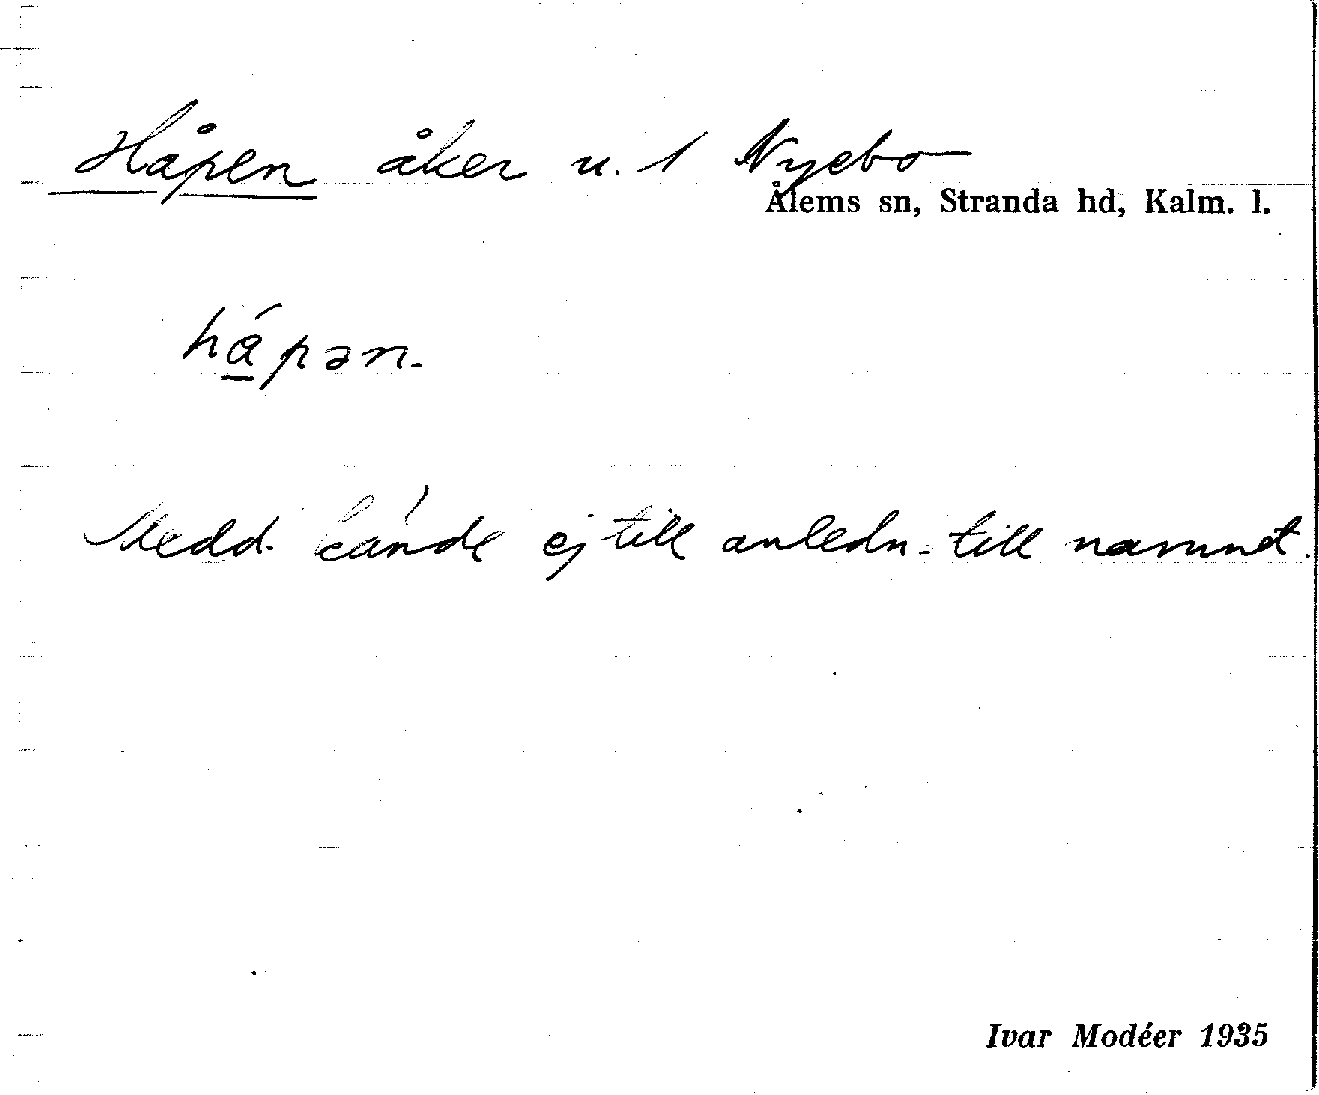 Håpen åker u. 1 Nyebo
Ålems sn, Stranda hd, Kalm. l.
há̱pən.
Medd. kände ej till anledn. till namnet.
Ivar Modéer 1935